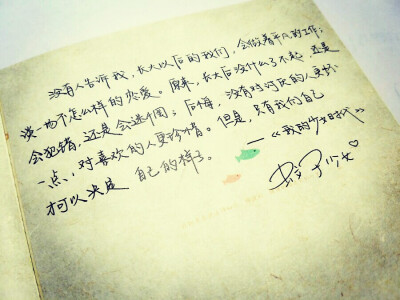 没有人告诉我，长大以后的我们，会做着平凡的工作；
谈一场不怎么样的恋爱。原来，长大后没什么了不起，还是
会犯错，还是会迷惘；后悔，没有对讨厌的人更坏
一点，对喜欢的人更珍惜。但是，只有我们自己
才可以决定 自己的样子。
—《我的少女时代》